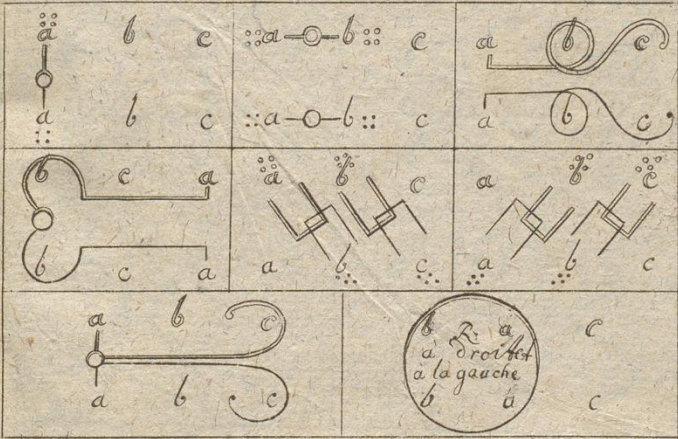 a b c
a b c
a b c
a b c
a b c
a b c
b c a
b c a
a b c
a b c
a b c
a b c
a b c
a b c
b R. a c
à droitte
à la gauche
b a c